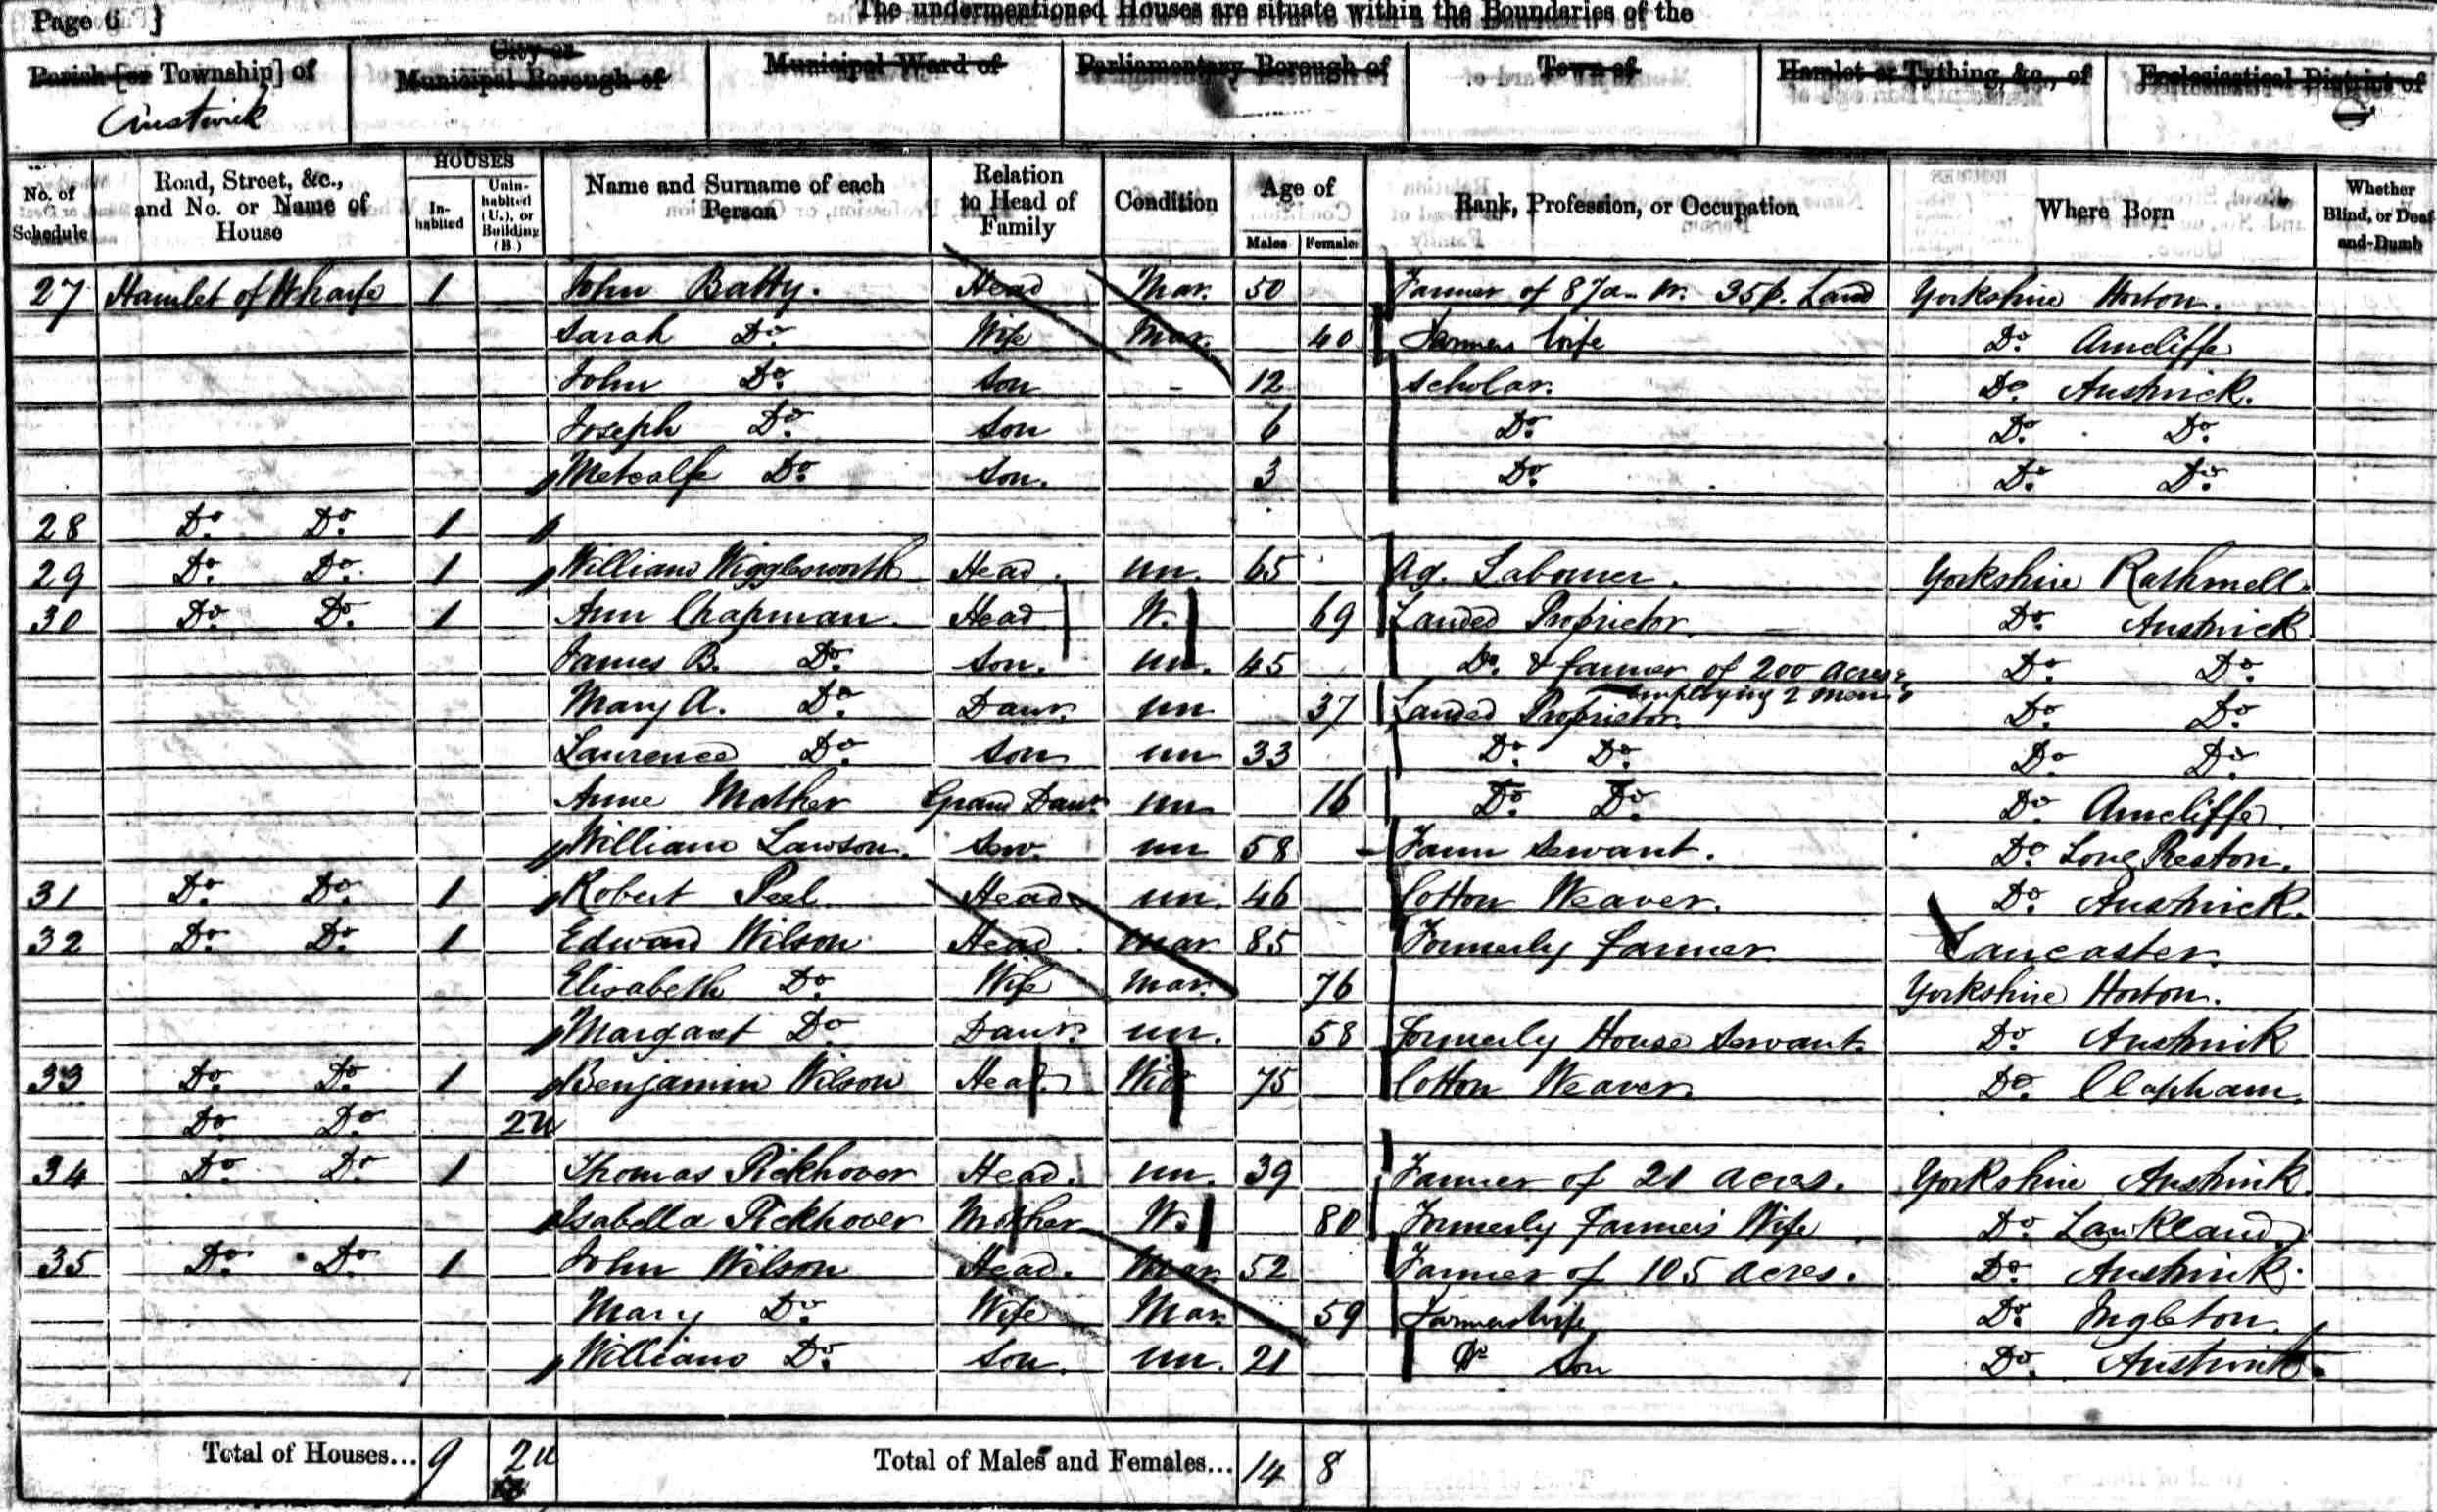 Page 6 }
The undermentioned Houses are situate within the Boundaries of the
Parish [or Township] of
City or Municipal Borough of
Municipal Ward of
Parliamentary Borough of
Town of
Hamlet or Tything, &c., of
Ecclesiastical District of
Austwick
No. of Schedule
Road, Street, &c., and No. or Name of House
HOUSES
In-habited
Unin-habited (U.), or Building (B.)
Name and Surname of each Person
Relation to Head of Family
Condition
Age of
Males
Females
Rank, Profession, or Occupation
Where Born
Whether Blind, or Deaf-and-Dumb
27 Hamlet of Wharfe 1 John Batty. Head Mar. 50 Farmer of 87a. 35p. Land Yorkshire Horton.
Sarah Do. Wife Mar. 40 Farmers Wife Do. Arncliffe
John Do. Son - 12 Scholar. Do. Austwick.
Joseph Do. Son 6 Do. Do. Do.
Metcalfe Do. Son. 3 Do. Do. Do.
28 Do. Do. 1
29 Do. Do. 1 William Wigglesworth Head. Un. 65 Ag. Labourer. Yorkshire Rathmell.
30 Do. Do. 1 Ann Chapman Head W. 69 Landed Proprietor Do. Austwick
James B. Do. Son. Un. 45 Do. & farmer of 200 acres Do. Do.
employing 2 men
Mary A. Do. Daur. Un 37 Landed Proprietor Do. Do.
Laurence Do. Son Un 33 Do. Do. Do. Do.
Anne Mather Grand Daur. Un 16 Do. Do. Do. Arncliffe.
William Lawson. Serv. Un 58 Farm Servant. Do. Long Preston.
31 Do. Do. 1 Robert Peel. Head Un. 46 Cotton Weaver. Do. Austwick.
32 Do. Do. 1 Edward Wilson Head. Mar 85 Formerly farmer Lancaster.
Elisabeth Do. Wife Mar. 76 Yorkshire Horton.
Margaret Do. Daur. Un. 58 Formerly House Servant. Do. Austwick
33 Do. Do. 1 Benjamin Wilson Head Wid 75 Cotton Weaver. Do. Clapham.
Do. Do. 2U
34 Do. Do. 1 Thomas Pickhover Head. Un. 39 Farmer of 21 acres. Yorkshire Austwick.
Isabella Pickhover Mother W. 80 Formerly farmer's Wife Do. Lawkland
35 Do. Do. 1 John Wilson Head. Mar 52 Farmer of 105 acres. Do. Austwick.
Mary Do. Wife Mar. 59 Farmers wife Do. Ingleton.
William Do. Son. Un. 21 Do Son Do. Austwick.
Total of Houses... 9 2U Total of Males and Females... 14 8